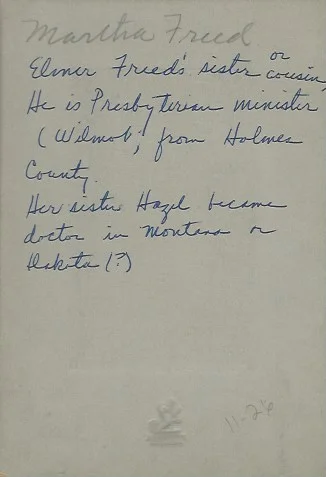 Martha Freed
Elmer Freed's sister or cousin,
He is Presbyterian minister
(Wilmot), from Holmes
County.
Her sister Hazel became
doctor in Montana or
Dakota (?)
11-26